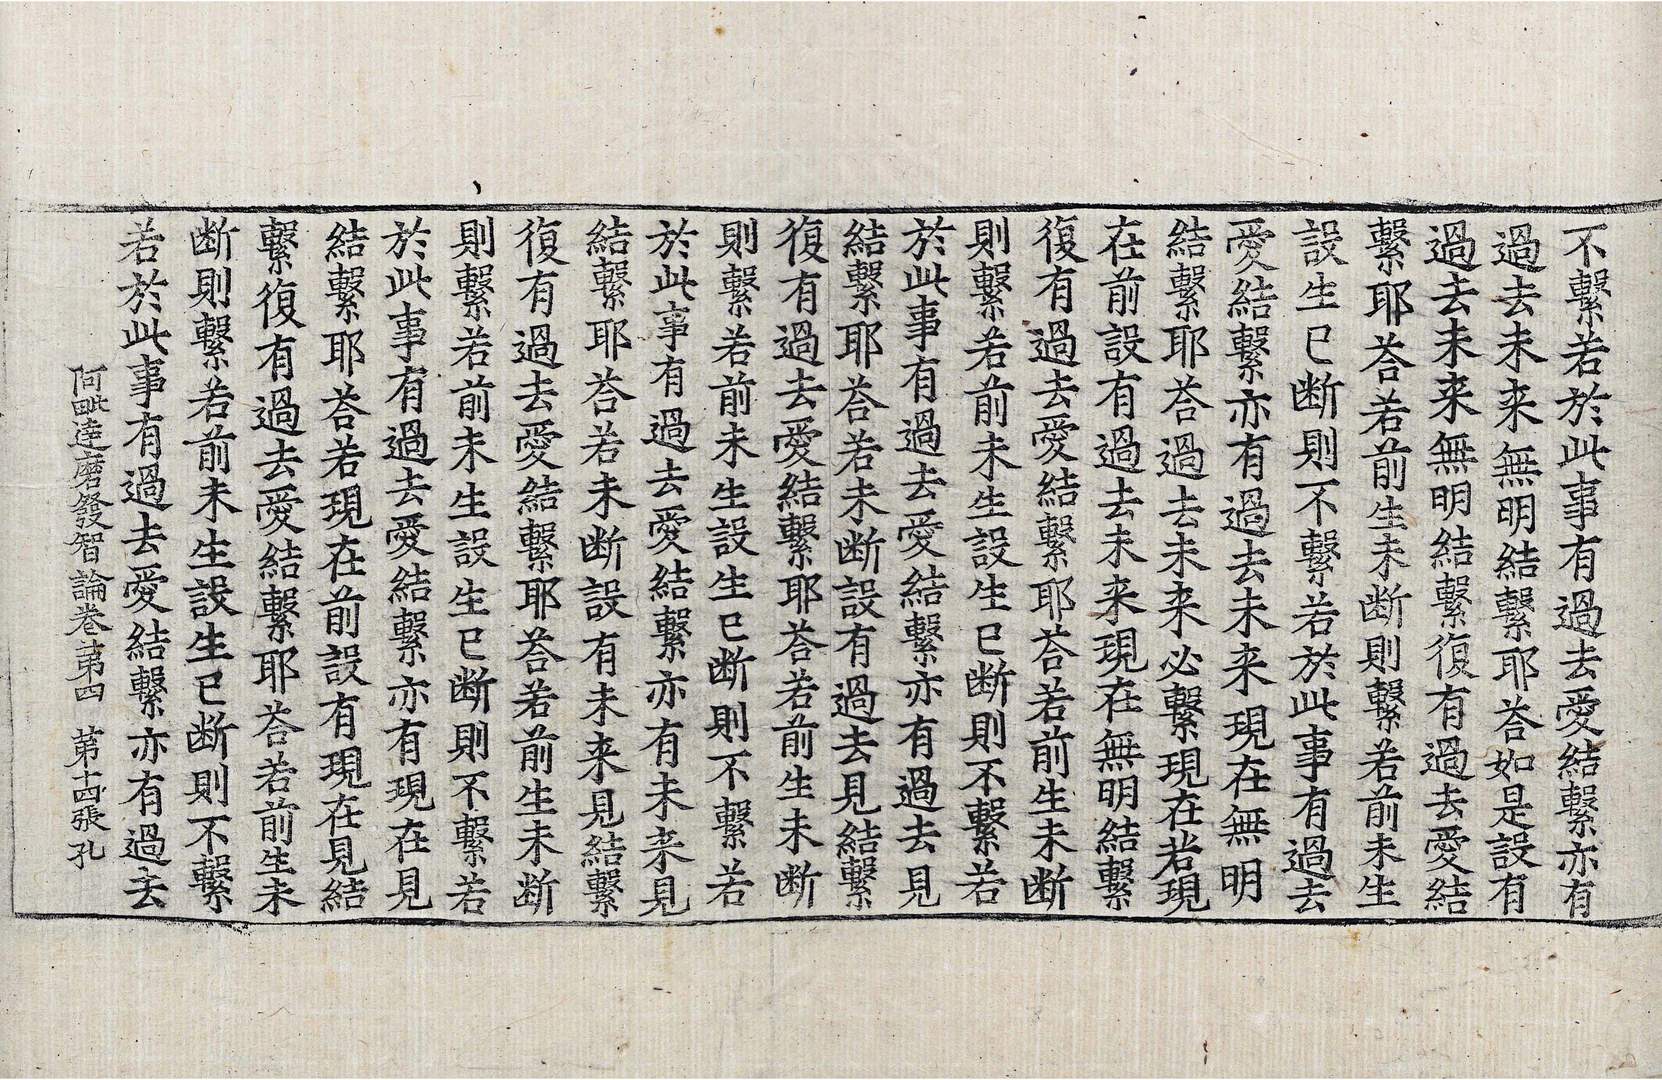 不繫若於此事有過去愛結繫亦有
過去未来無明結繫耶荅如是設有
過去未来無明結繫復有過去愛結
繫耶荅若前生未断則繫若前未生
設生已断則不繫若於此事有過去
愛結繫亦有過去未来現在無明
結繫耶荅過去未来必繫現在若現
在前設有過去未来現在無明結繫
復有過去愛結繫耶荅若前生未断
則繫若前未生設生已断則不繫若
於此事有過去愛結繫亦有過去見
結繫耶荅若未断設有過去見結繫
復有過去愛結繫耶荅若前生未断
則繫若前未生設生已断則不繫若
於此事有過去愛結繫亦有未来見
結繫耶荅若未断設有未来見結繫
復有過去愛結繫耶荅若前生未断
則繫若前未生設生已断則不繫若
於此事有過去愛結繫亦有現在見
結繫耶荅若現在前設有現在見結
繫復有過去愛結繫耶荅若前生未
断則繫若前未生設生已断則不繫
若於此事有過去愛結繫亦有過去
阿毗達磨發智論卷第四 第十四張 孔